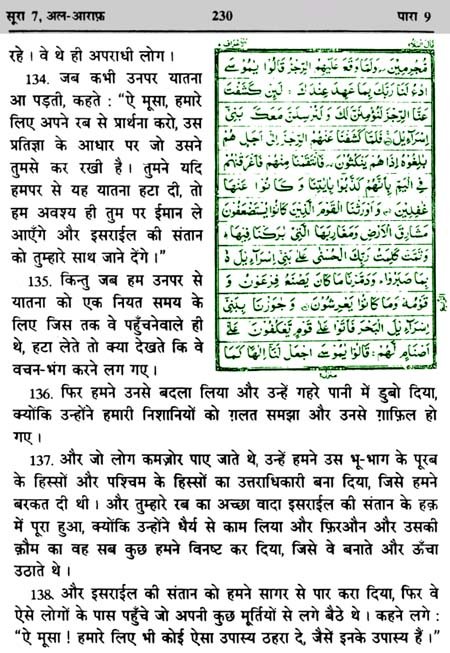 सूरा 7, अल-आराफ़ 230 पारा 9
रहे । वे थे ही अपराधी लोग ।
134. जब कभी उनपर यातना
आ पड़ती, कहते : “ऐ मूसा, हमारे
लिए अपने रब से प्रार्थना करो, उस
प्रतिज्ञा के आधार पर जो उसने
तुमसे कर रखी है । तुमने यदि
हमपर से यह यातना हटा दी, तो
हम अवश्य ही तुम पर ईमान ले
आएँगे और इसराईल की संतान
को तुम्हारे साथ जाने देंगे ।”
135. किन्तु जब हम उनपर से
यातना को एक नियत समय के
लिए जिस तक वे पहुँचनेवाले ही
थे, हटा लेते तो क्या देखते कि वे
वचन-भंग करने लग गए ।
مُّجْرِمِيْنَ وَلَمَّا وَقَعَ عَلَيْهِمُ الرِّجْزُ قَالُوْا يٰمُوْسَى
ادْعُ لَنَا رَبَّكَ بِمَا عَهِدَ عِنْدَكَ لَئِنْ كَشَفْتَ
عَنَّا الرِّجْزَ لَنُؤْمِنَنَّ لَكَ وَلَنُرْسِلَنَّ مَعَكَ بَنِيْٓ
اِسْرَآءِيْلَ فَلَمَّا كَشَفْنَا عَنْهُمُ الرِّجْزَ اِلٰٓى اَجَلٍ هُمْ
بٰلِغُوْهُ اِذَا هُمْ يَنْكُثُوْنَ فَانْتَقَمْنَا مِنْهُمْ فَاَغْرَقْنٰهُمْ
فِى الْيَمِّ بِاَنَّهُمْ كَذَّبُوْا بِاٰيٰتِنَا وَكَانُوْا عَنْهَا
غٰفِلِيْنَ وَاَوْرَثْنَا الْقَوْمَ الَّذِيْنَ كَانُوْا يُسْتَضْعَفُوْنَ
مَشَارِقَ الْاَرْضِ وَمَغَارِبَهَا الَّتِيْ بٰرَكْنَا فِيْهَا
وَتَمَّتْ كَلِمَتُ رَبِّكَ الْحُسْنٰى عَلٰى بَنِيْٓ اِسْرَآءِيْلَ
بِمَا صَبَرُوْا وَدَمَّرْنَا مَا كَانَ يَصْنَعُ فِرْعَوْنُ وَ
قَوْمُهٗ وَمَا كَانُوْا يَعْرِشُوْنَ وَجٰوَزْنَا بِبَنِيْٓ
اِسْرَآءِيْلَ الْبَحْرَ فَاَتَوْا عَلٰى قَوْمٍ يَّعْكُفُوْنَ عَلٰٓى
اَصْنَامٍ لَّهُمْ قَالُوْا يٰمُوْسَى اجْعَلْ لَّنَآ اِلٰهًا كَمَا
136. फिर हमने उनसे बदला लिया और उन्हें गहरे पानी में डुबो दिया,
क्योंकि उन्होंने हमारी निशानियों को ग़लत समझा और उनसे ग़ाफ़िल हो
गए ।
137. और जो लोग कमज़ोर पाए जाते थे, उन्हें हमने उस भू-भाग के पूरब
के हिस्सों और पश्चिम के हिस्सों का उत्तराधिकारी बना दिया, जिसे हमने
बरकत दी थी । और तुम्हारे रब का अच्छा वादा इसराईल की संतान के हक़
में पूरा हुआ, क्योंकि उन्होंने धैर्य से काम लिया और फ़िरऔन और उसकी
क़ौम का वह सब कुछ हमने विनष्ट कर दिया, जिसे वे बनाते और ऊँचा
उठाते थे ।
138. और इसराईल की संतान को हमने सागर से पार करा दिया, फिर वे
ऐसे लोगों के पास पहुँचे जो अपनी कुछ मूर्तियों से लगे बैठे थे । कहने लगे :
“ऐ मूसा ! हमारे लिए भी कोई ऐसा उपास्य ठहरा दे, जैसें इनके उपास्य हैं ।”